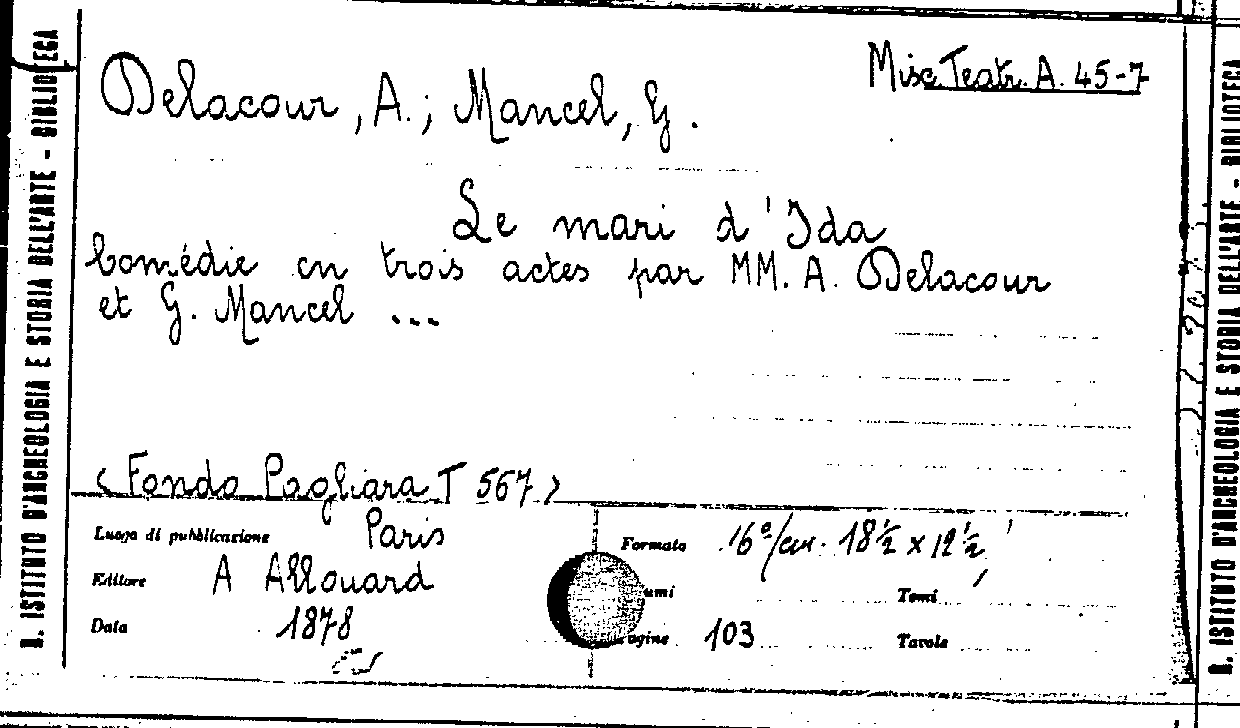 R. ISTITUTO D'ARCHEOLOGIA E STORIA DELL'ARTE - BIBLIOTECA
Misc. Teatr. A. 45-7
Delacour, A.; Mancel, G.
Le mari d'Ida
comédie en trois actes par MM. A. Delacour
et G. Mancel ...
(Fondo Pagliara T 567)
Luogo di pubblicazione Paris
Editore A Allouard
Data 1878
Formato 16º/cm. 18½ x 12½
umi
Tomi
agine 103
Tavole
R. ISTITUTO D'ARCHEOLOGIA E STORIA DELL'ARTE - BIBLIOTECA